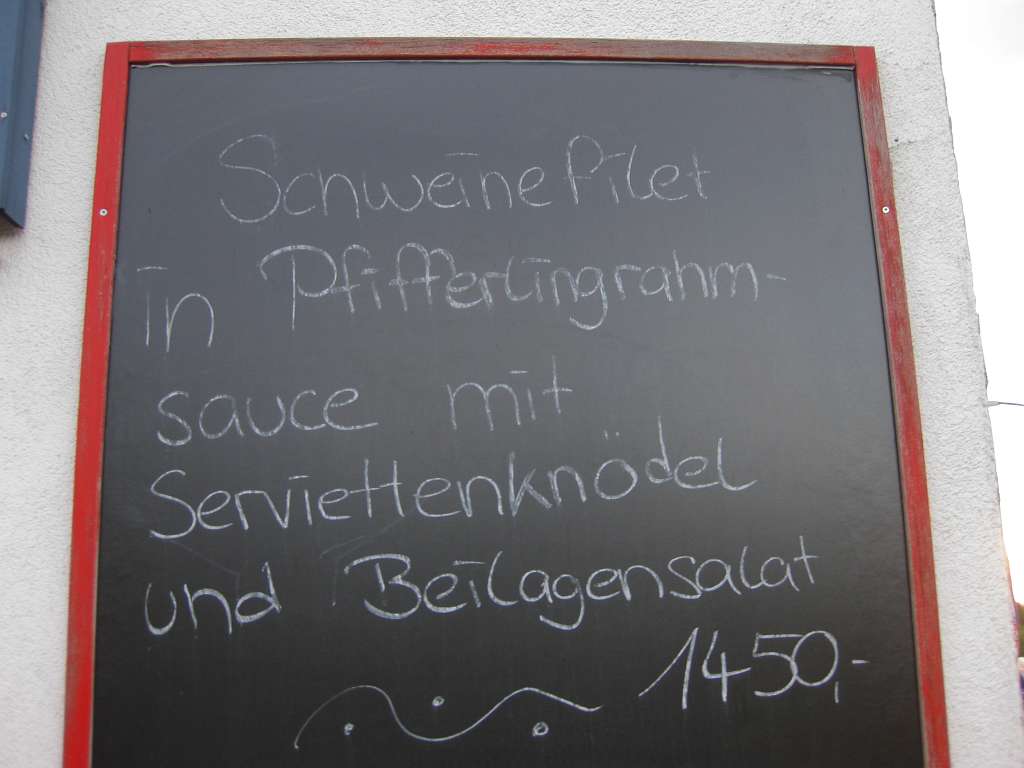 Schweinefilet
in Pfifferlingrahm-
sauce mit
Serviettenknödel
und Beilagensalat
1450,-